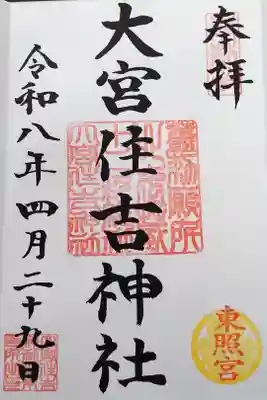 奉拝
大宮住吉神社
令和八年四月二十九日
東照宮